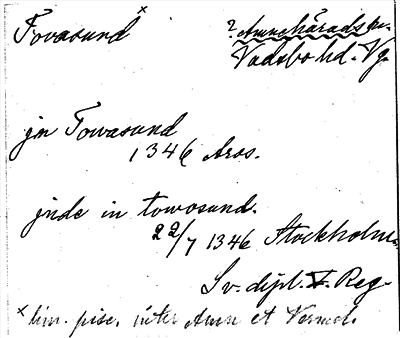 Tovasund x
? Amnehärads sn.
Vadsbo hd. Vg.
jn Towasund
1346 Aros.
jnde in towosund.
22/7 1346 Stockholm.
Sv. dipl. V. Reg.
x lim. pisc. inter Amn et Vermel.